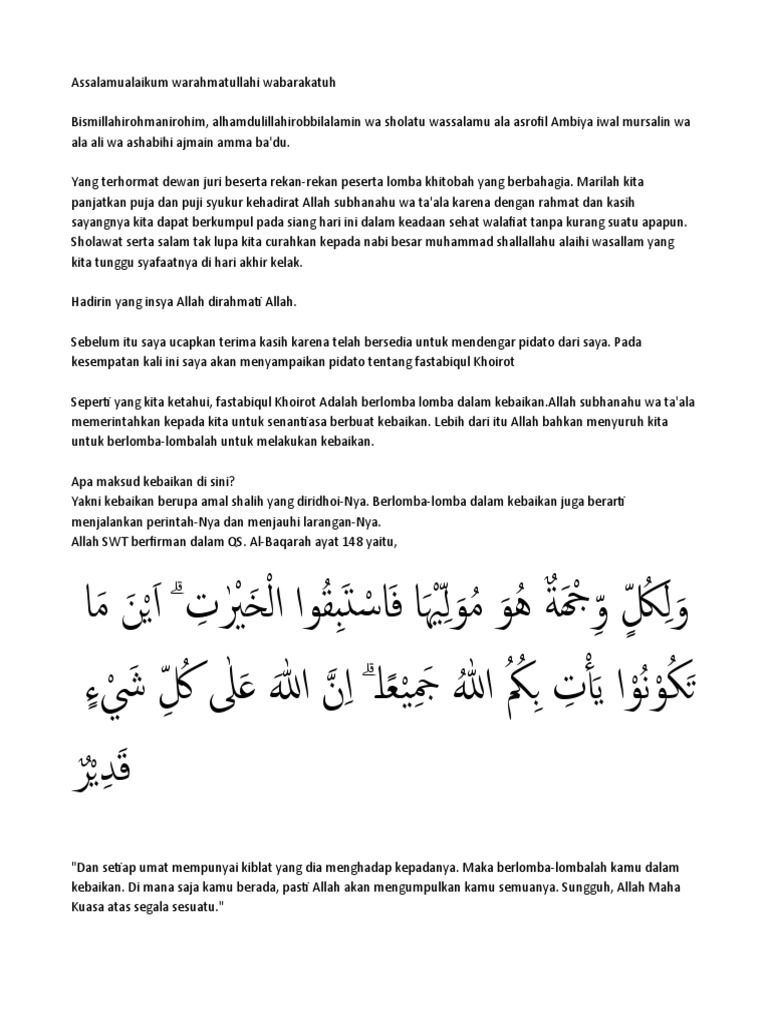 Assalamualaikum warahmatullahi wabarakatuh
Bismillahirohmanirohim, alhamdulillahirobbilalamin wa sholatu wassalamu ala asrofil Ambiya iwal mursalin wa
ala ali wa ashabihi ajmain amma ba'du.
Yang terhormat dewan juri beserta rekan-rekan peserta lomba khitobah yang berbahagia. Marilah kita
panjatkan puja dan puji syukur kehadirat Allah subhanahu wa ta'ala karena dengan rahmat dan kasih
sayangnya kita dapat berkumpul pada siang hari ini dalam keadaan sehat walafiat tanpa kurang suatu apapun.
Sholawat serta salam tak lupa kita curahkan kepada nabi besar muhammad shallallahu alaihi wasallam yang
kita tunggu syafaatnya di hari akhir kelak.
Hadirin yang insya Allah dirahmati Allah.
Sebelum itu saya ucapkan terima kasih karena telah bersedia untuk mendengar pidato dari saya. Pada
kesempatan kali ini saya akan menyampaikan pidato tentang fastabiqul Khoirot
Seperti yang kita ketahui, fastabiqul Khoirot Adalah berlomba lomba dalam kebaikan.Allah subhanahu wa ta'ala
memerintahkan kepada kita untuk senantiasa berbuat kebaikan. Lebih dari itu Allah bahkan menyuruh kita
untuk berlomba-lombalah untuk melakukan kebaikan.
Apa maksud kebaikan di sini?
Yakni kebaikan berupa amal shalih yang diridhoi-Nya. Berlomba-lomba dalam kebaikan juga berarti
menjalankan perintah-Nya dan menjauhi larangan-Nya.
Allah SWT berfirman dalam QS. Al-Baqarah ayat 148 yaitu,
وَلِكُلٍّ وِّجْهَةٌ هُوَ مُوَلِّيْهَا فَاسْتَبِقُوا الْخَيْرٰتِ ۗ اَيْنَ مَا
تَكُوْنُوْا يَأْتِ بِكُمُ اللّٰهُ جَمِيْعًا ۗ اِنَّ اللّٰهَ عَلٰى كُلِّ شَيْءٍ
قَدِيْرٌ
"Dan setiap umat mempunyai kiblat yang dia menghadap kepadanya. Maka berlomba-lombalah kamu dalam
kebaikan. Di mana saja kamu berada, pasti Allah akan mengumpulkan kamu semuanya. Sungguh, Allah Maha
Kuasa atas segala sesuatu."